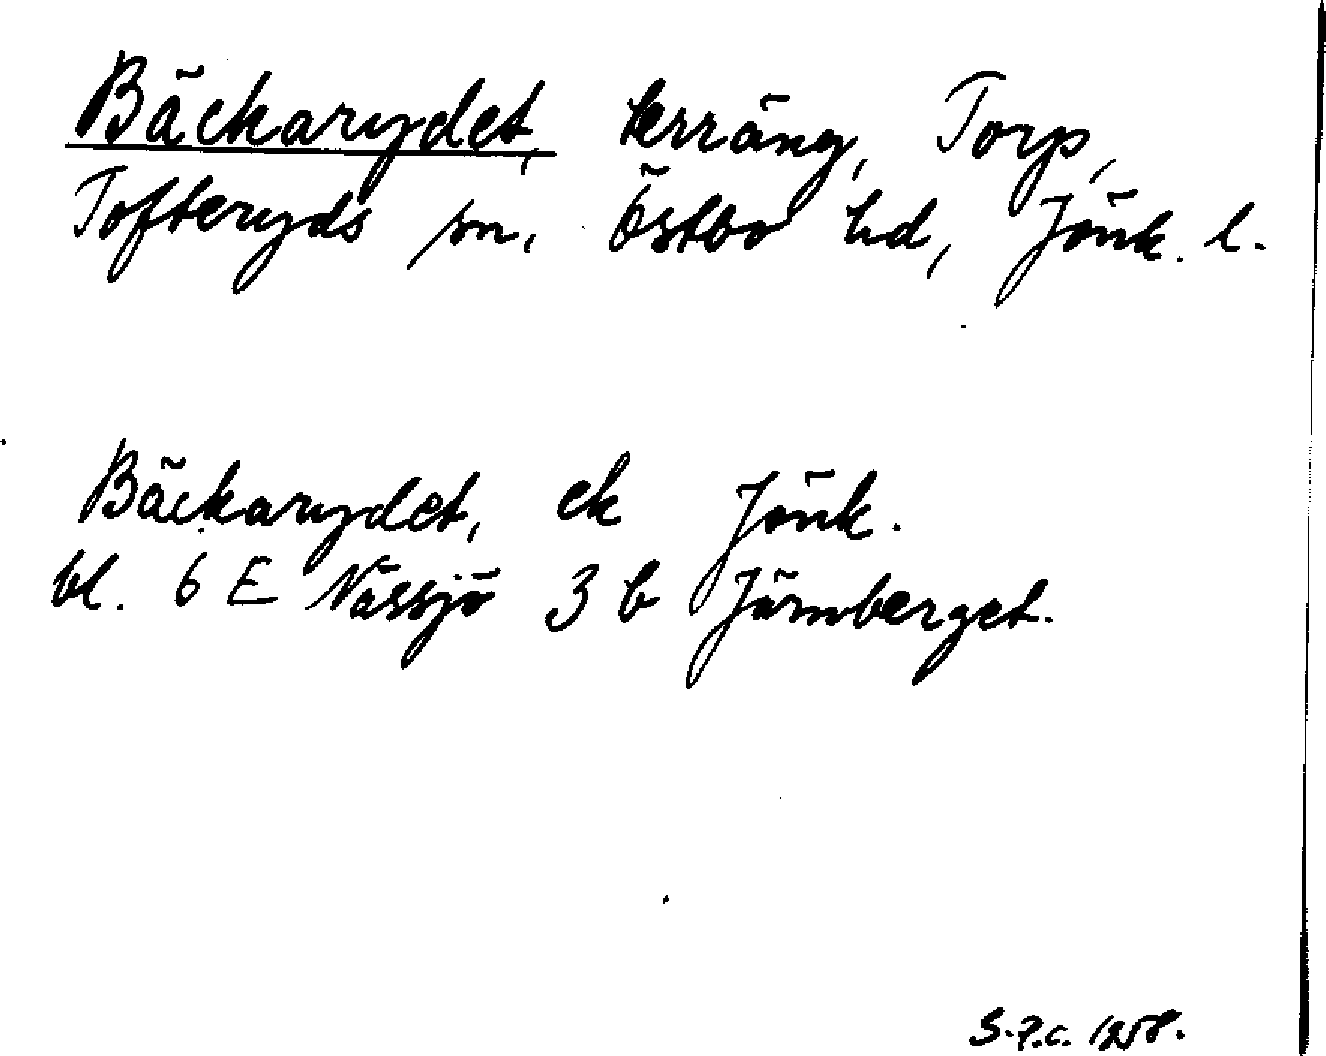 Bäckarydet, terräng, Torp,
Tofteryds sn, Östbo hd, Jönk. l.
Bäckarydet, ek Jönk.
bl. 6 E Nässjö 3 b Järnberget.